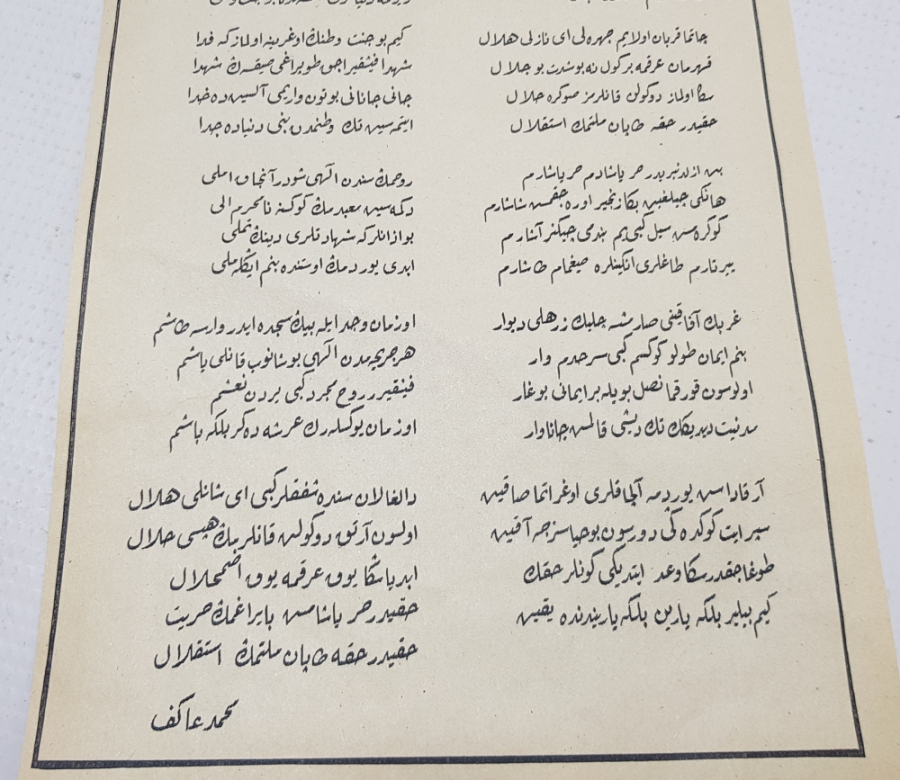 چاتما قربان اولایم چهره‌کی ای نازلی هلال
قهرمان عرقمه بر کول نه بو شدت بو جلال
سکا اولماز دوکولن قانلرمز صوکره حلال
حقیدر حقه طاپان ملتمڭ استقلال
بن ازلدنبریدر حر یاشادم حر یاشارم
هانکی چیلغین بکا زنجیر اوره‌جقمش شاشارم
کوکره‌مش سیل کبی‌یم بندمی چیکنر آشارم
ییرتارم طاغلری انکینلره صیغمام طاشارم
غربڭ آفاقینی صارمشسه چلیك زرهلی دیوار
بنم ایمان طولو کوکسم کبی سرحدم وار
اولوسون قورقما ناصل بویله بر ایمانی بوغار
مدنیت دیدیکڭ تك دیشی قالمش جاناوار
آرقاداش یوردیمه آلچاقلری اوغراتما صاقین
سپر ایت کوکده‌کی دورسون بو حیاسزجه آقین
طوغاجقدر سکا وعد ایتدیکی کونلر حقڭ
کیم بیلیر بلکه یارین بلکه یاریندنده یقین
کیم بو جنت وطنڭ اوغرینه اولماز که فدا
شهدا فیشقیراجق طوپراغی صیقسه‌ڭ شهدا
جانی جانانی بوتون واریمی آلسین ده خدا
ایتمه‌سین تك وطنمدن بنی دنیاده جدا
روحمڭ سندن الهی شودر آنجاق املی
دکمه‌سین معبدمڭ کوکسنه نامحرم الی
بو اذانلر که شهادتلری دینڭ تملی
ابدی یوردمڭ اوستنده بنم ایکله‌ملی
او زمان وجد ایله بیڭ سجده ایدر وارسه طاشم
هر جریحه‌مدن الهی بوشانوب قانلی یاشم
فیشقیرر روح مجرد کبی یردن نعشم
او زمان یوکسله‌رك عرشه ده‌کر بلکه باشم
دالغالان سنده شفقلر کبی ای شانلی هلال
اولسون آرتق دوکولن قانلرمڭ هپسی حلال
ابدیا سکا یوق عرقمه یوق اضمحلال
حقیدر حر یاشامش بایراغمڭ حریت
حقیدر حقه طاپان ملتمڭ استقلال
محمد عاکف